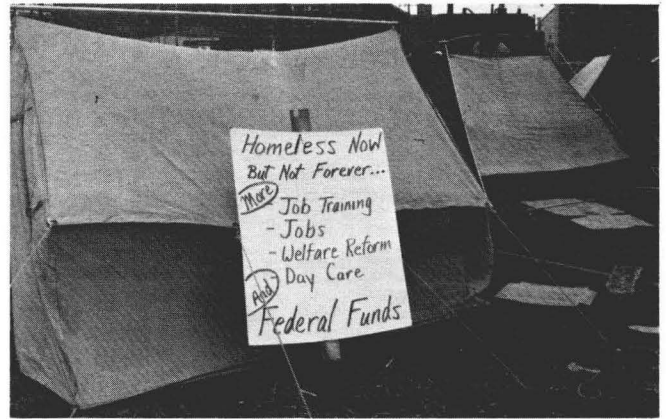 Homeless Now
But Not Forever...
More
- Job Training
- Jobs
- Welfare Reform
- Day Care
And
Federal Funds